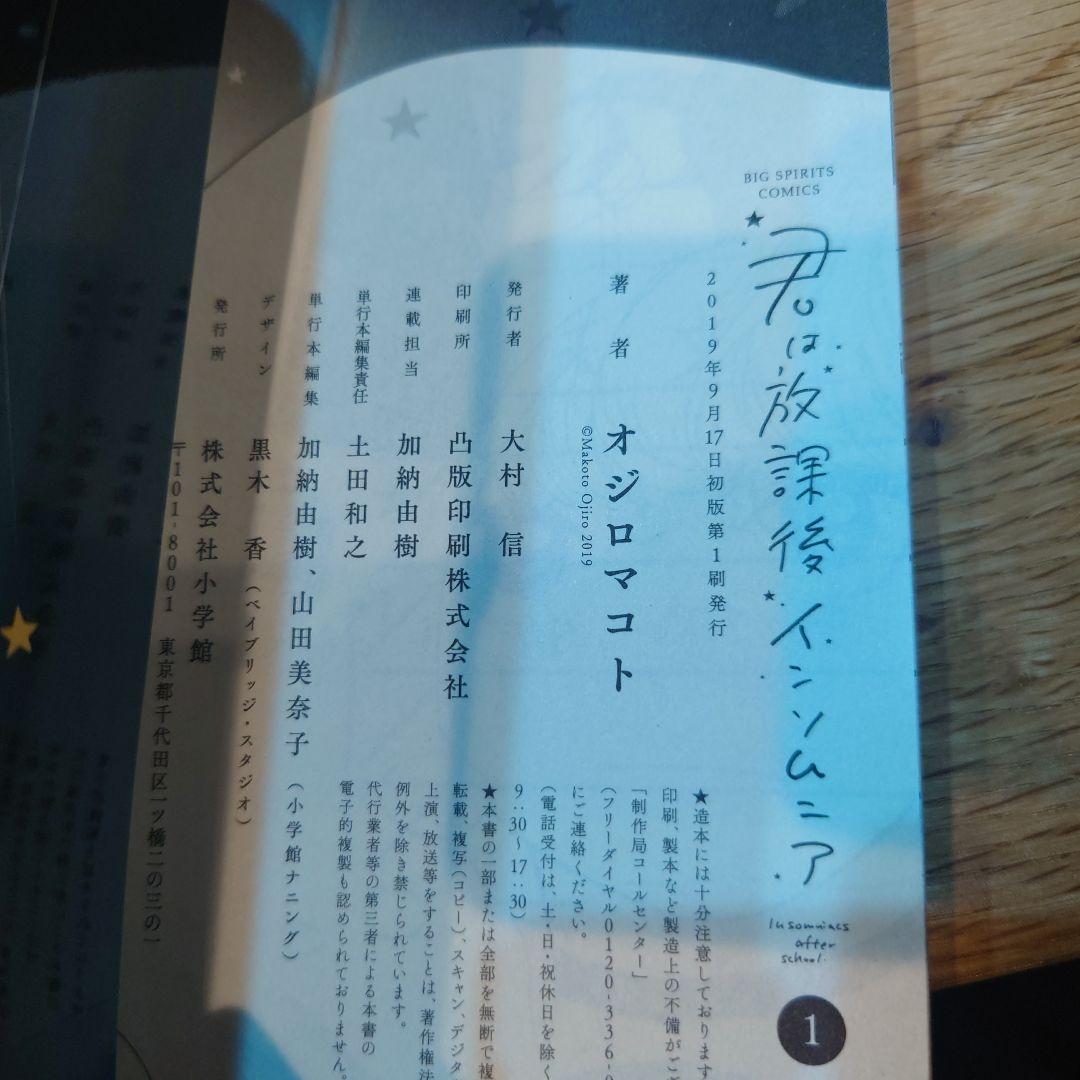 BIG SPIRITS
COMICS
君は放課後インソムニア
Insomniacs
after
school.
1
2019年9月17日初版第1刷発行
著者 オジロマコト
©Makoto Ojiro 2019
発行者 大村 信
印刷所 凸版印刷株式会社
連載担当 加納由樹
単行本編集責任 土田和之
単行本編集 加納由樹、山田美奈子(小学館ナニング)
デザイン 黒木 香(ベイブリッジ・スタジオ)
発行所 株式会社小学館
〒101-8001 東京都千代田区一ツ橋二の三の一
★造本には十分注意しております
印刷、製本など製造上の不備がご
「制作局コールセンター」
(フリーダイヤル0120-336-
にご連絡ください。
(電話受付は、土・日・祝休日を除く
9:30〜17:30)
★本書の一部または全部を無断で複
転載、複写(コピー)、スキャン、デジタ
上演、放送等をすることは、著作権法
例外を除き禁じられています。
代行業者等の第三者による本書の
電子的複製も認められておりません。